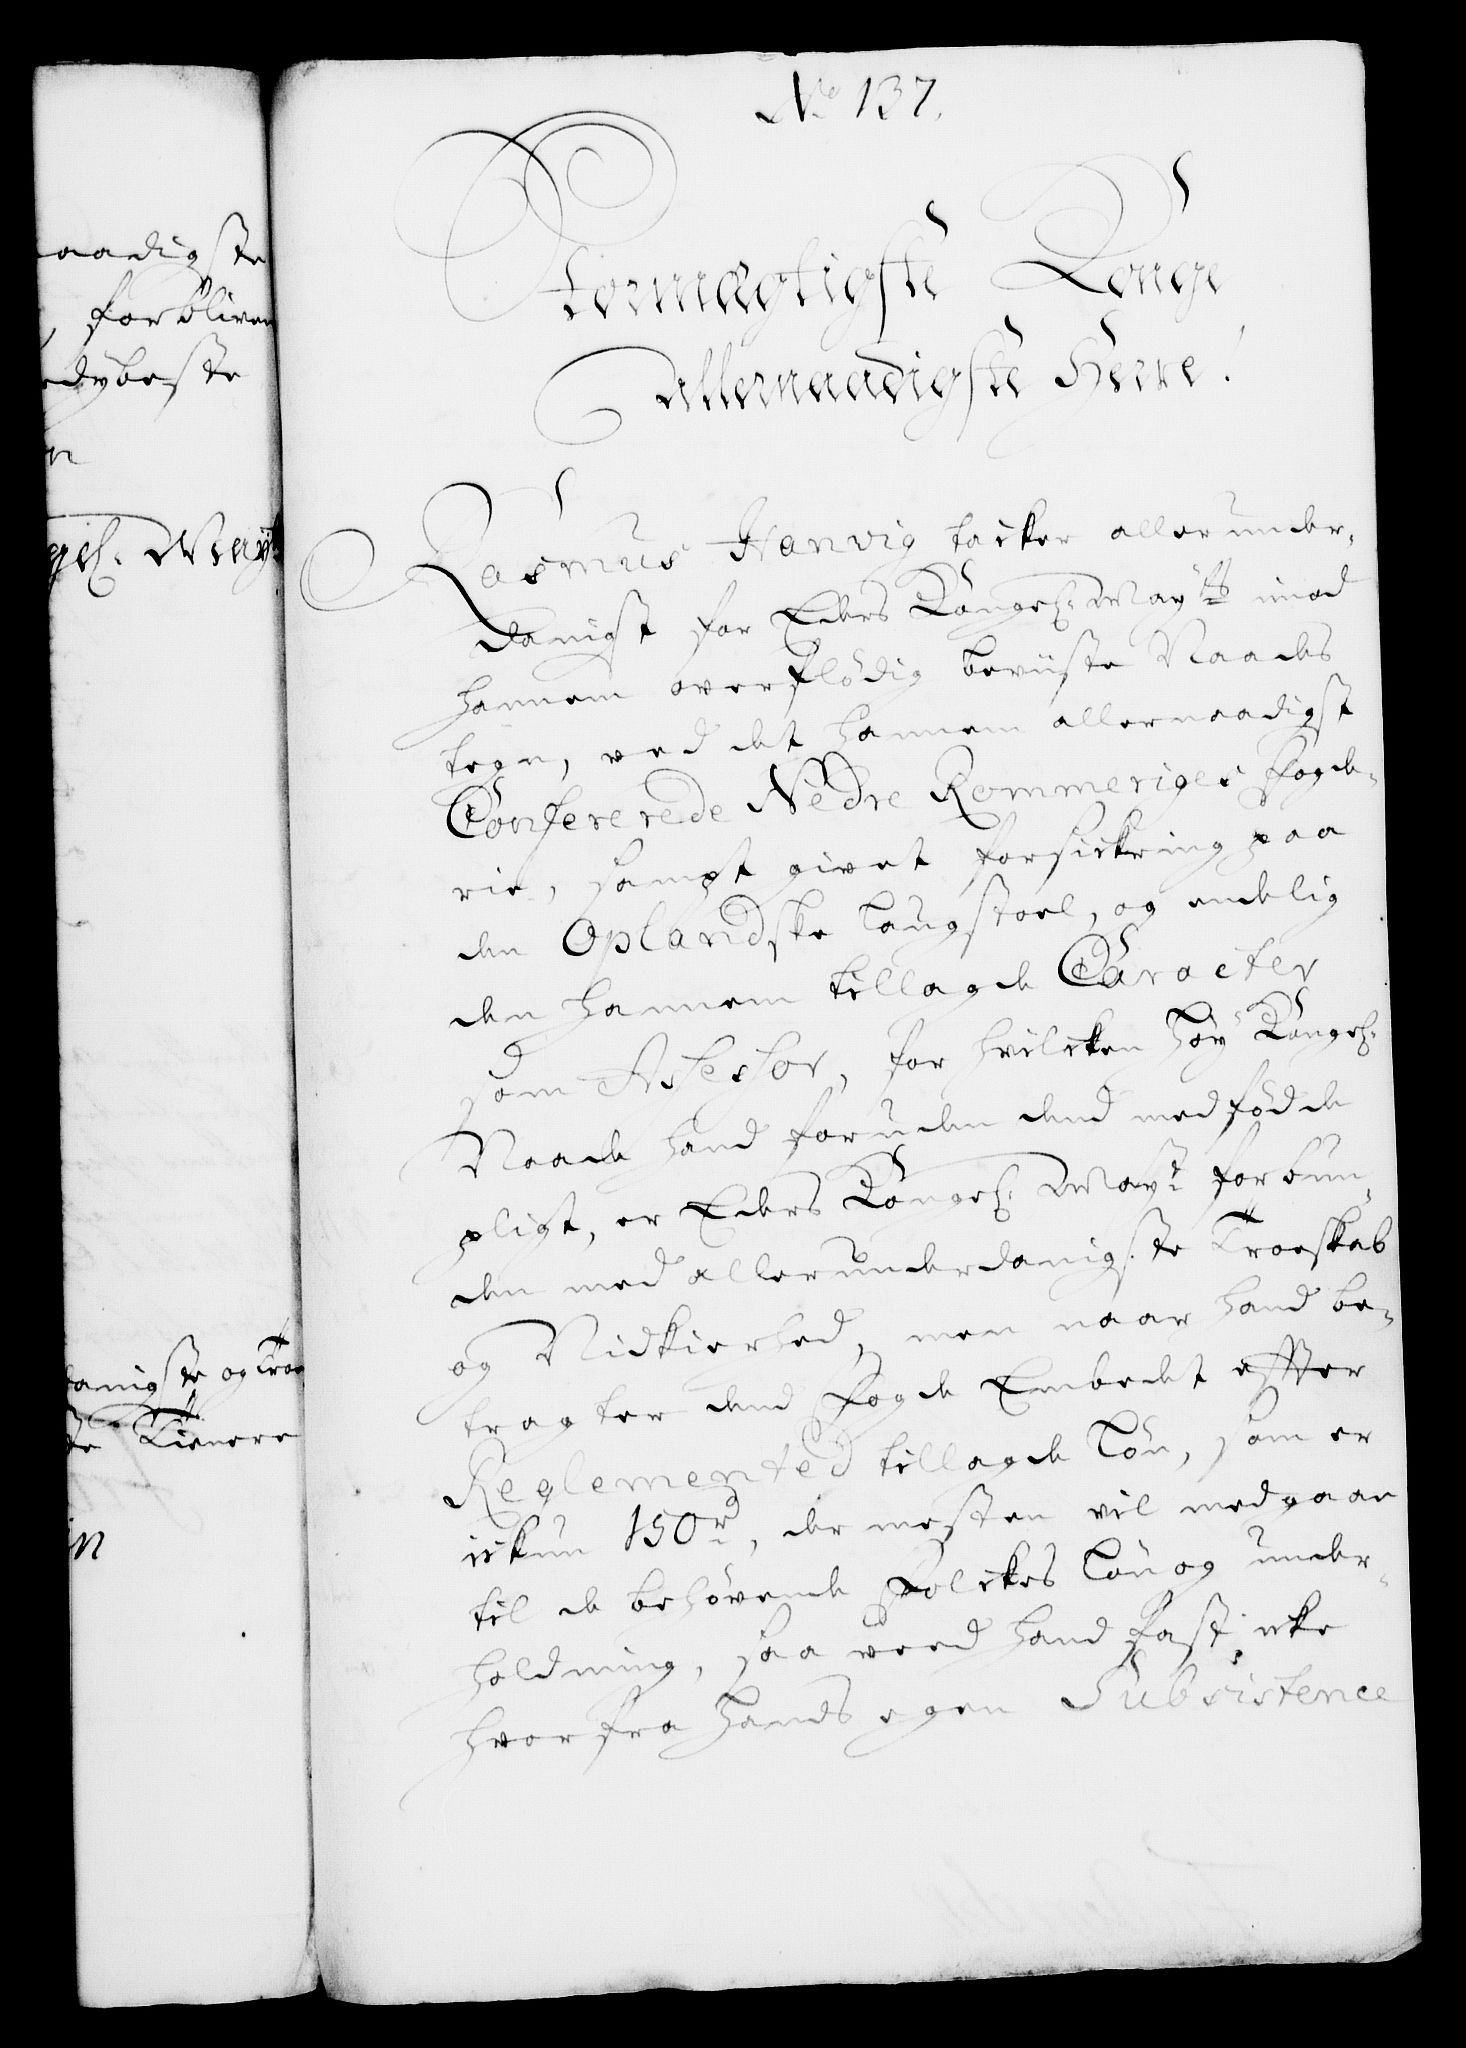 No 137.
Stormægtigste Konge
Allernaadigste Herre!
Rasmus Hanvig tacker allerunder-
danigst for Eders Kongel: Mayts imod
hannem overflødig beviiste Naades
tegn, ved det hannem allernaadigst
Confererede Nedre Rommeriges Fogde-
rie, sampt givet forsickring paa
den Oplandske Laugstoel, og endelig
den hannem tillagde Caracter
som Assessor, for hvilcken høy Kongel:
Naade hand foruden dend medfødde
pligt, er Eders Kongel: Mayt forbun-
den med allerunderdanigste Troeskab
og Nidkierhed, men naar hand be-
tragter dend Fogde Embedet effter
Reglemented tillagde Løn, som er
ickun 150 rd, der mesten vil medgaae
til de behøvende Folckes Løn og under-
holdning, saa veed hand fast icke
hvorfra hands egen Subsistence
aadigste
, forblive
edybeste
n
gel: Mayt
danigste og Troe
te Tienere
in